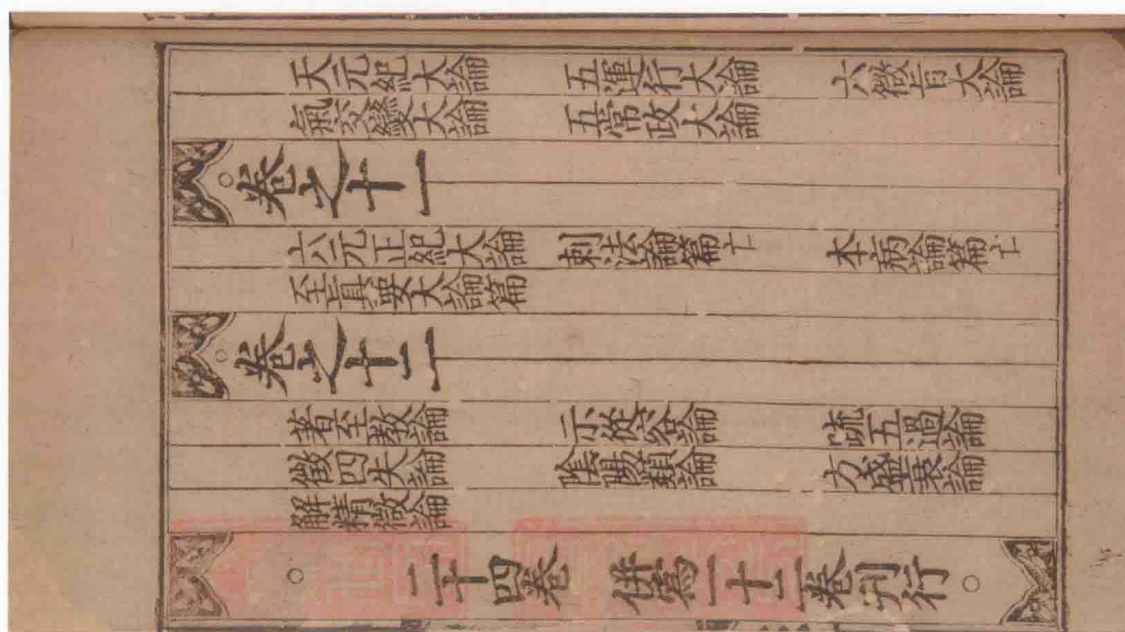 天元紀大論 五運行大論 六微旨大論
氣交變大論 五常政大論
○卷之十一
六元正紀大論 刺法論篇亡 本病論篇亡
至眞要大論篇
○卷之十二
著至教論 示從容論 䟽五過論
徵四失論 陰陽類論 方盛衰論
解精微論
○二十四卷 併爲一十二卷刊行○